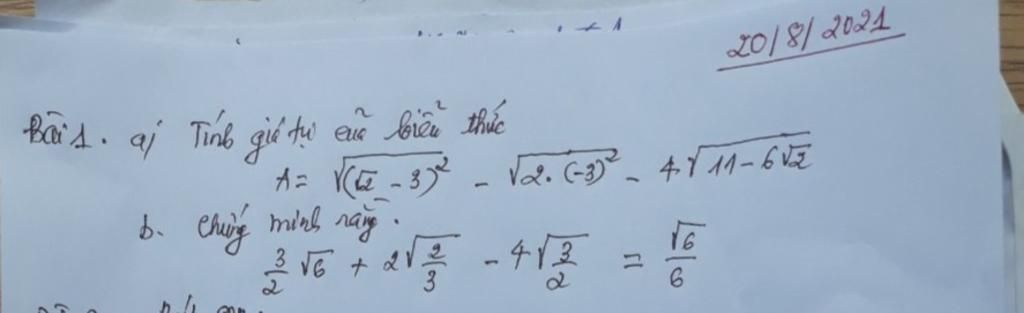 20/8/2021
Bài 1. a) Tính giá trị của biểu thức
A = √((√2 - 3)²) - √(2.(-3)²) - 4.√(11 - 6√2)
b. Chứng minh rằng.
3/2 √6 + 2√(2/3) - 4√(3/2) = √6/6